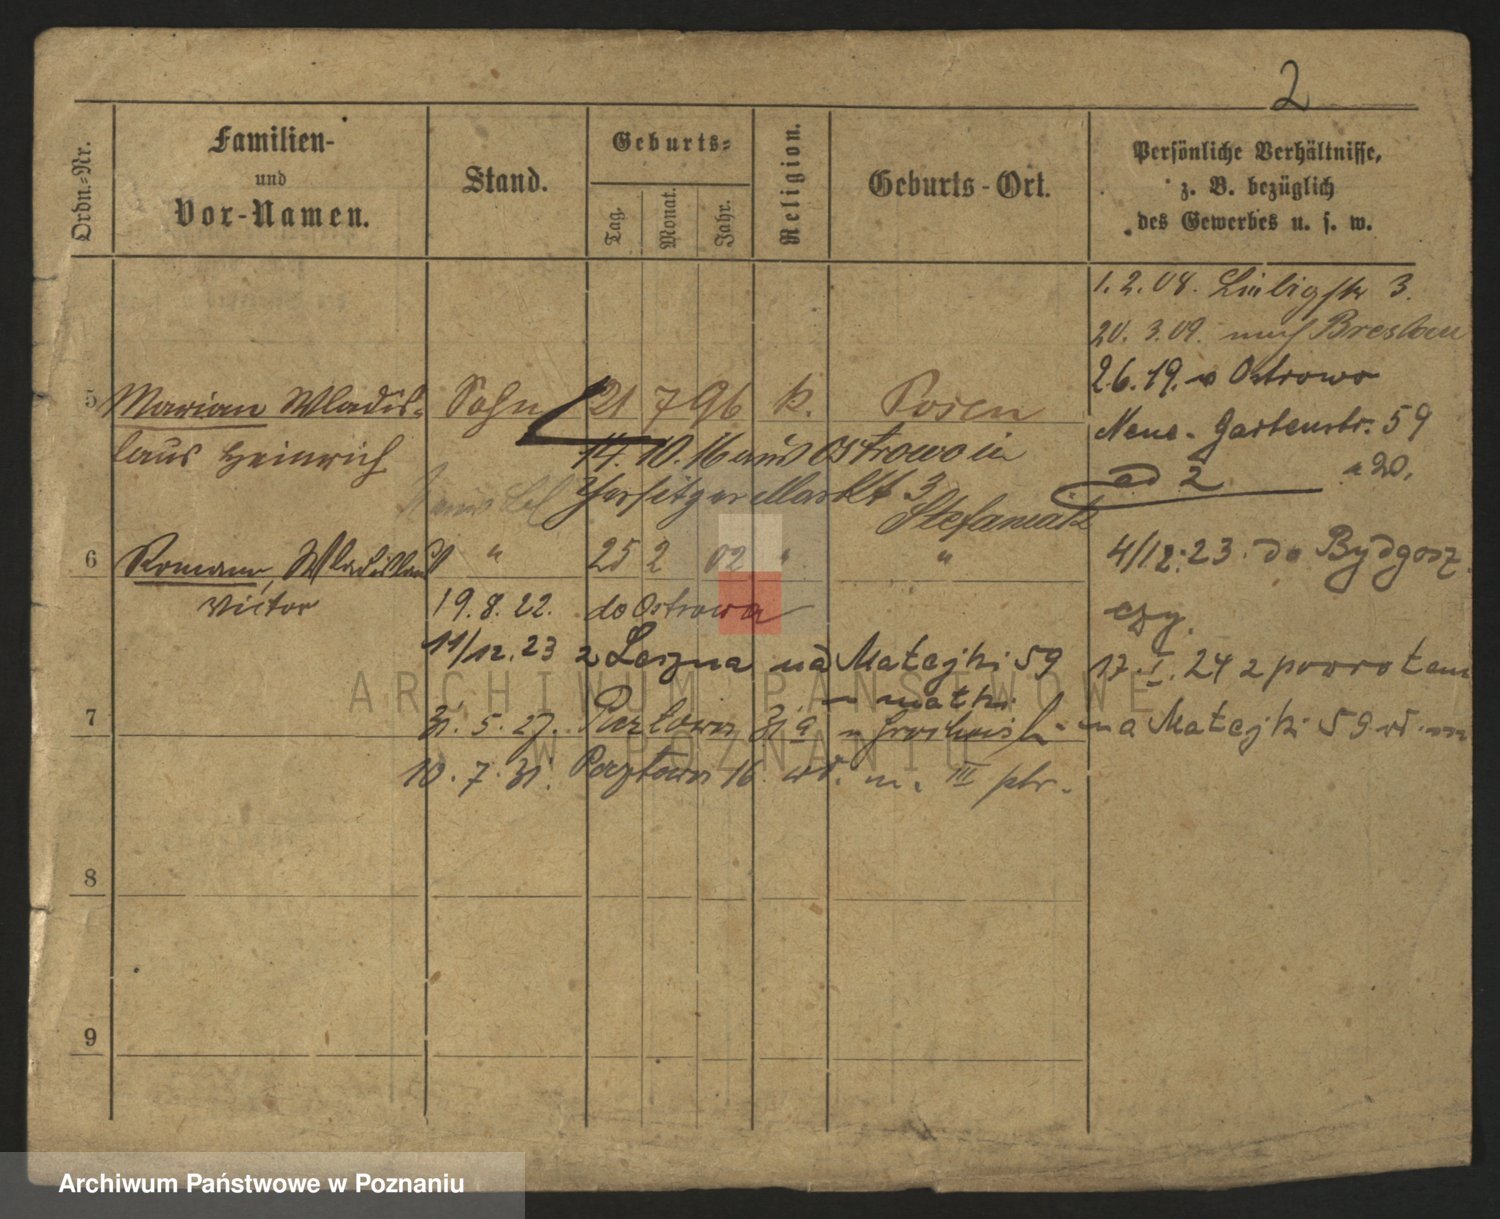 2
Ordn.-Nr.
Familien-
und
Vor-Namen.
Stand.
Geburts-
Tag.
Monat.
Jahr.
Religion.
Geburts-Ort.
Persönliche Verhältnisse,
z. B. bezüglich
des Gewerbes u. s. w.
1.2.08. Liebigstr 3.
20. 3.09. nach Breslau
26.19. v Ostrowo
Neue-Gartenstr. 59
ad 2
5 Marian Wladis- Sohn 21 7 96 k. Posen
laus Heinrich
14. 10. 16 aus Ostrowo in
Jersitzer Markt 3
6 Roman, Wladislaus " 25 2 02 " "
Victor
4/12.23. do Bydgosz
czy.
19.8.22. do Ostrowa
11/12.23 z Leszna na Matejki 59
u matki
17.I.24 z powrotem
na Matejki 59
7
31.5.27.
10.7.31. 16 m. III ptr.
8
9
ARCHIWUM PAŃSTWOWE
W POZNANIU
Archiwum Państwowe w Poznaniu